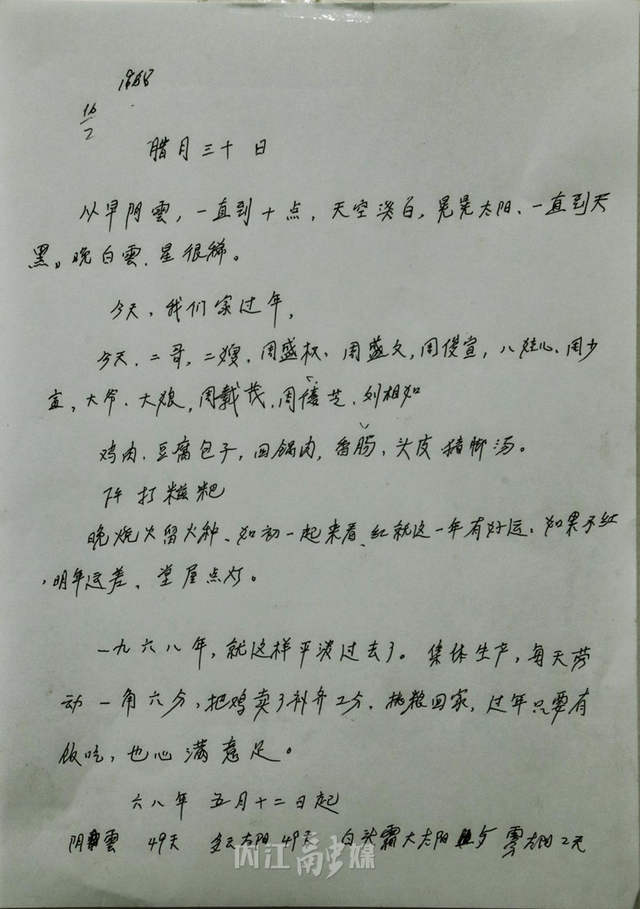 1968
16/2
腊月三十日
从早阴雲，一直到十点，天空淡白，晃晃太阳、一直到天
黑。晚白雲．星很稀。
今天、我们家过年，
今天．二哥，二嫂．周盛权、周盛文，周俊宣，八娃心．周少
宣，大爷．大娘，周戴茂．周倓芝．刘相如
鸡肉．豆腐包子，回锅肉，香肠、头皮猪脚汤。
下午打糍粑
晚烧火留火种、如初一起来看、红就这一年有好运、如果不红
，明年运差、堂屋点灯。
一九六八年，就这样平淡过去了。集体生产，每天劳
动一角六分，把鸡卖了补齐2分．挑粮回家，过年只要有
饭吃，也心满意足。
六八年 五月十二日起
阴雲 49天 多云太阳49天 白头霜大太阳 雲太阳2天
内江融媒